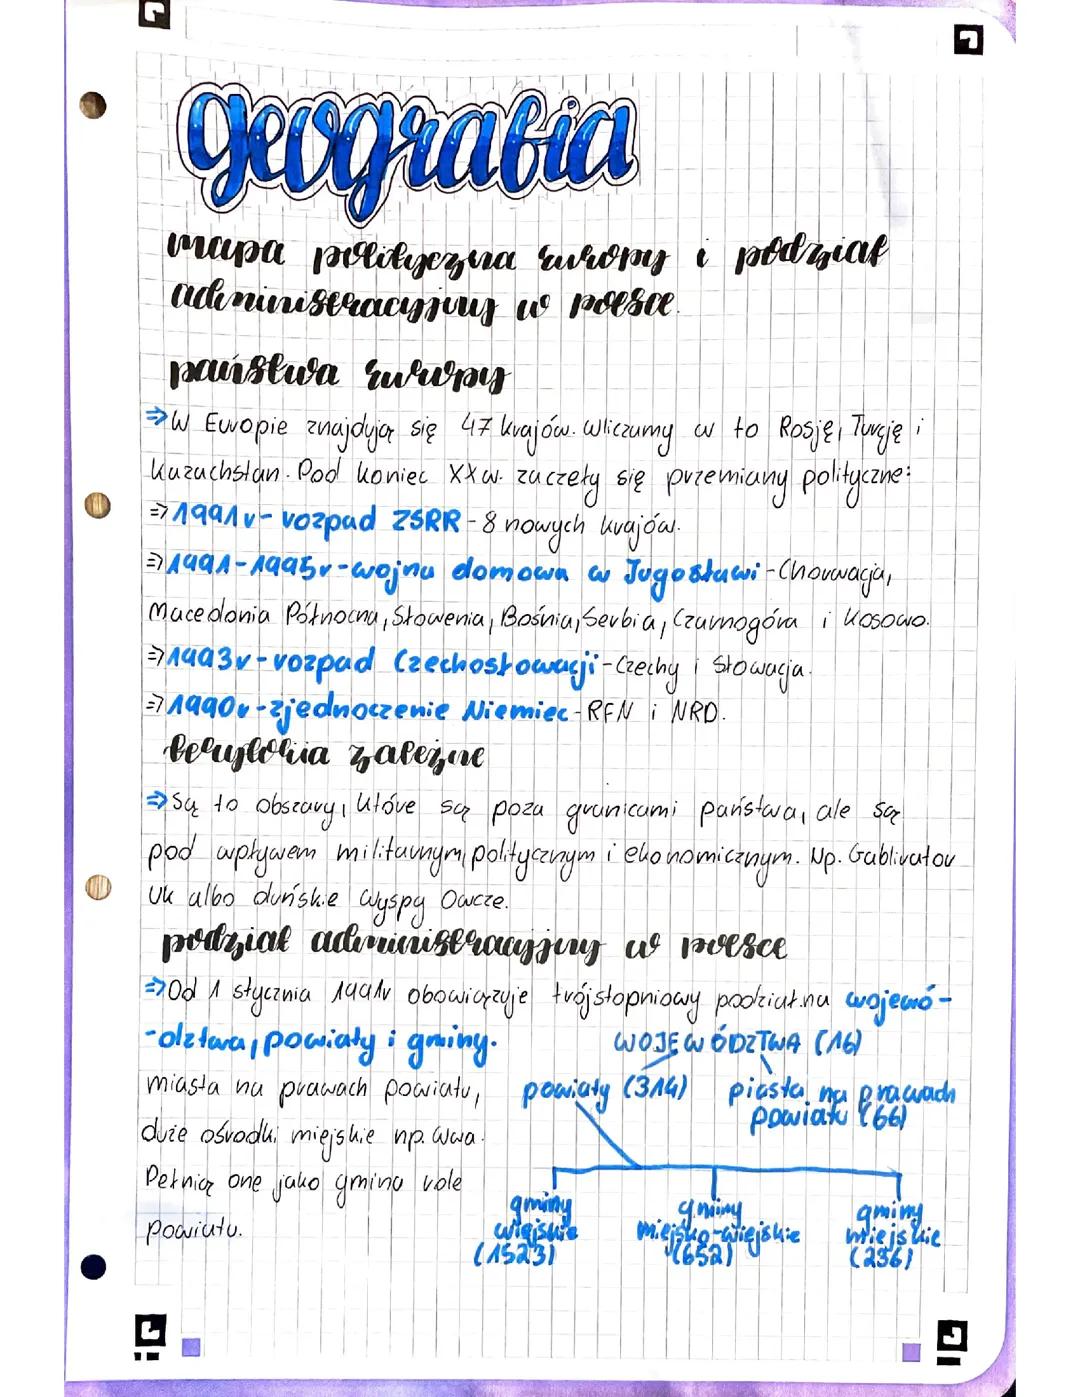 geografia
mapa polityczna europy i podział
administracyjny w polsce.
państwa europy
⇒W Europie znajdują się 47 krajów. Wliczamy w to Rosję, Turcję i
Kazachstan. Pod koniec XX w. zaczęły się przemiany polityczne:
⇒1991r- rozpad ZSRR - 8 nowych krajów.
⇒1991-1995r-wojna domowa w Jugosławi-Chorwacja,
Macedonia Północna, Słowenia, Bośnia, Serbia, Czarnogóra i Kosowo.
⇒1993r-rozpad Czechosłowacji-Czechy i Słowacja.
⇒1990r-zjednoczenie Niemiec-RFN i NRD.
terytoria zależne
⇒Są to obszary, które są poza granicami państwa, ale są
pod wpływem militarnym, politycznym i ekonomicznym. Np. Gablirator
Uk albo duńskie Wyspy Owcze.
podział administracyjny w polsce
⇒Od 1 stycznia 1991r obowiązuje trójstopniowy podział.na wojewó-
-dztwa, powiaty i gminy.
WOJEWÓDZTWA (16)
miasta na prawach powiatu,
powiaty (314) piasta na prawach
powiatu (66)
duże ośrodki miejskie np. Wwa.
Pełnią one jako gmina role
powiatu.
gminy
wiejskie
(1523)
gminy
miejsko-wiejskie
(652)
gminy
miejskie
(236)